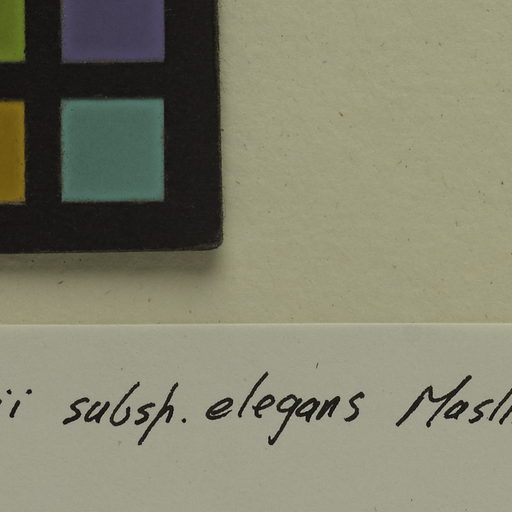 ii subsh. elegans Masl